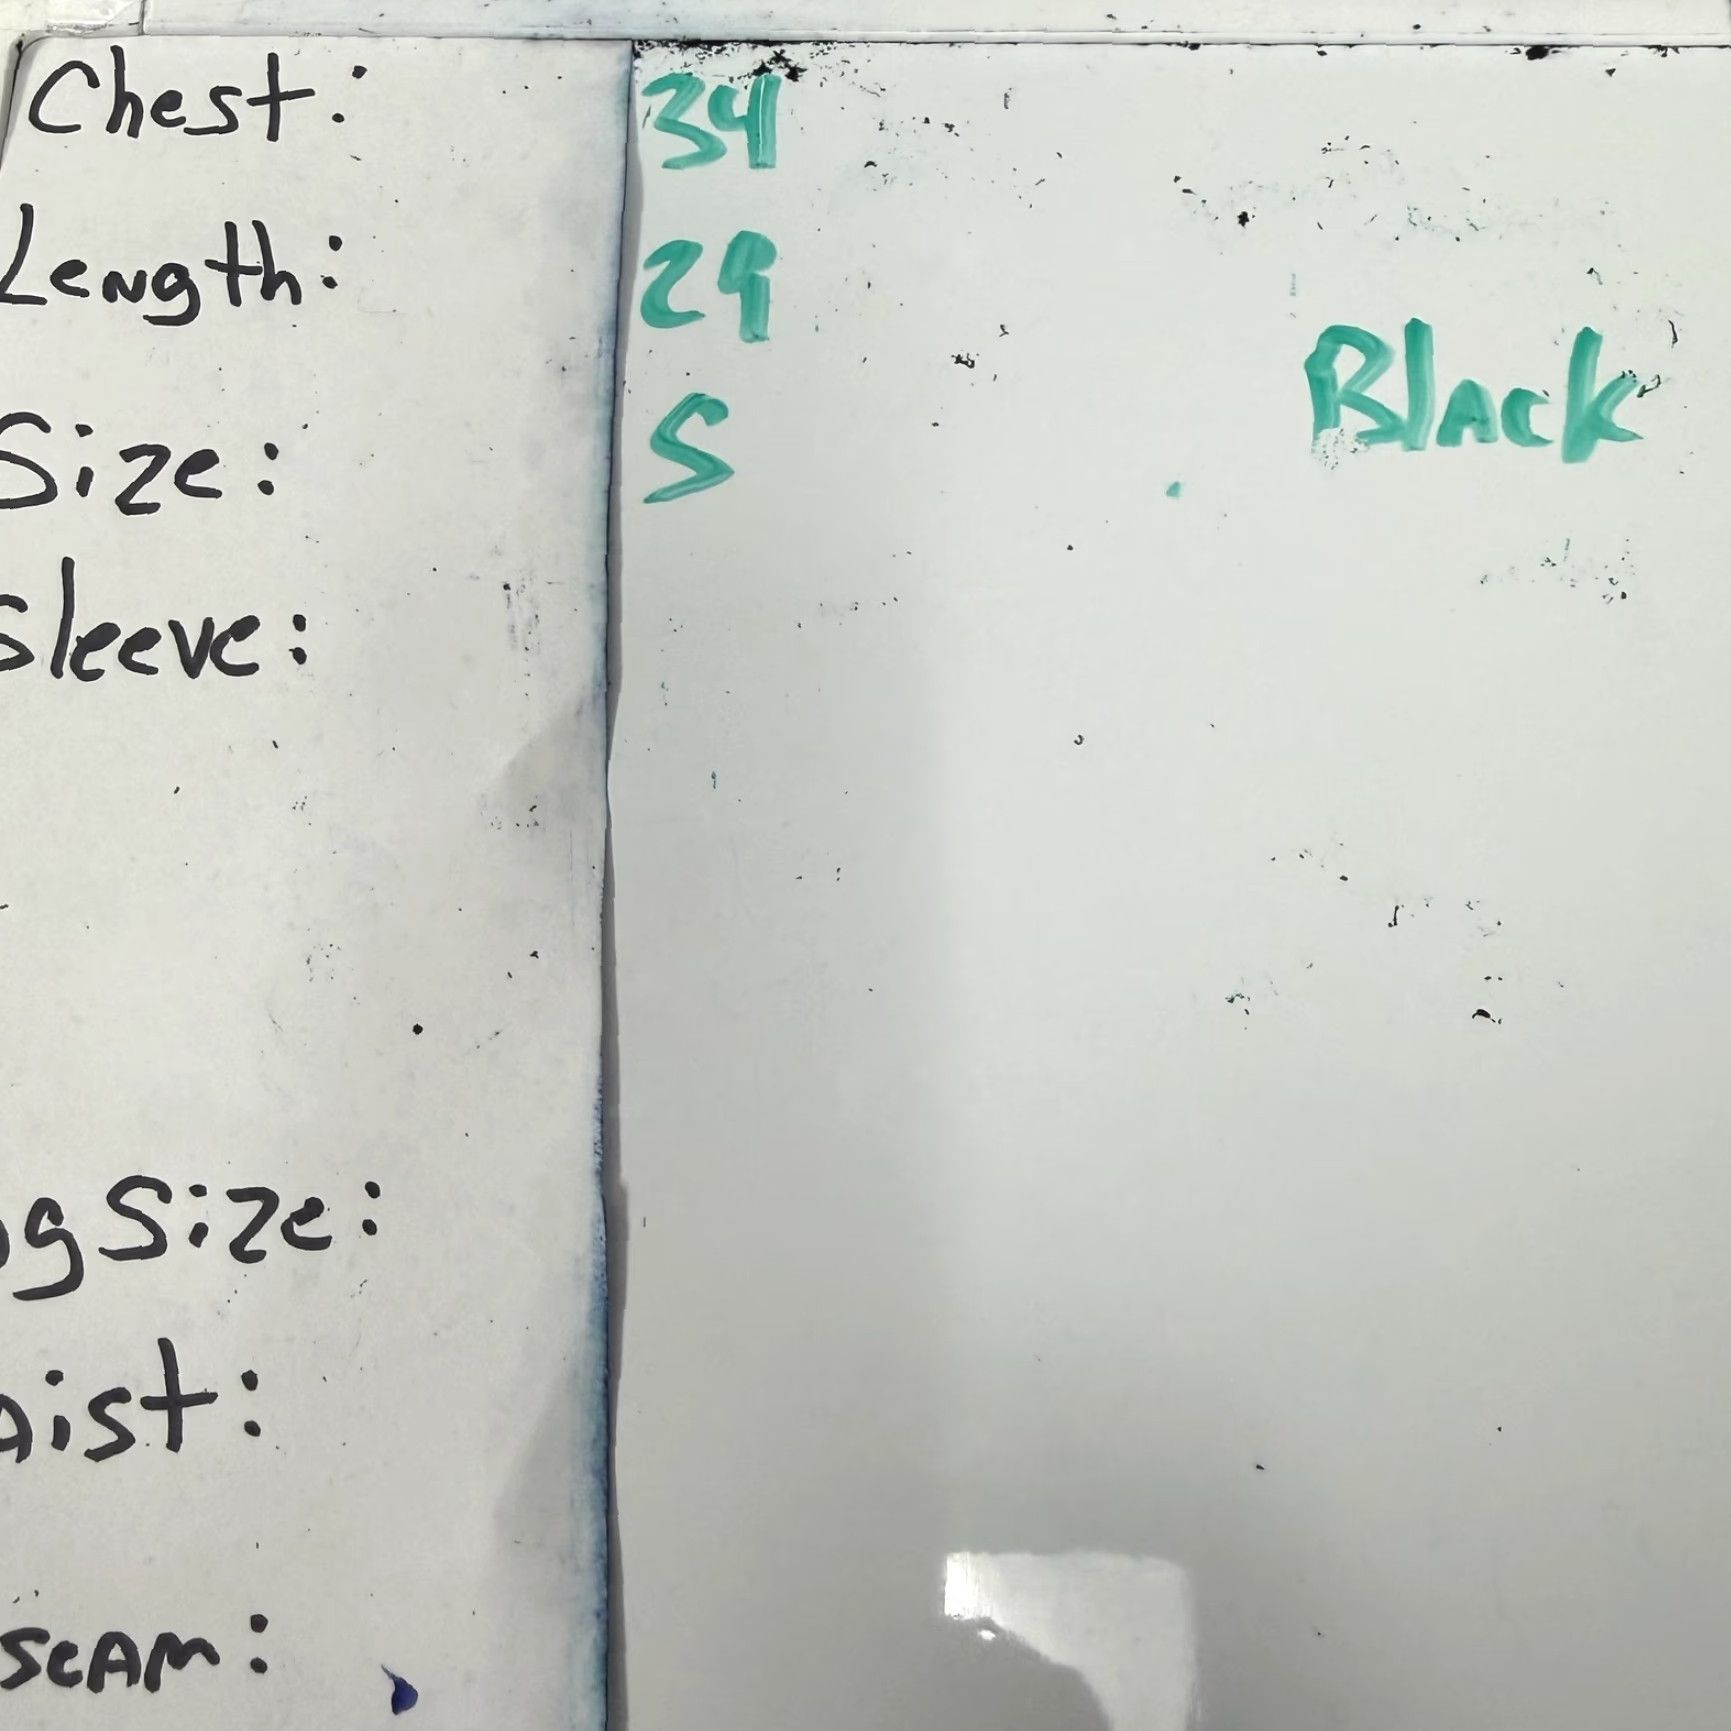 Chest: 34
Length: 29
Size: S Black
Sleeve:
gSize:
aist:
seam: